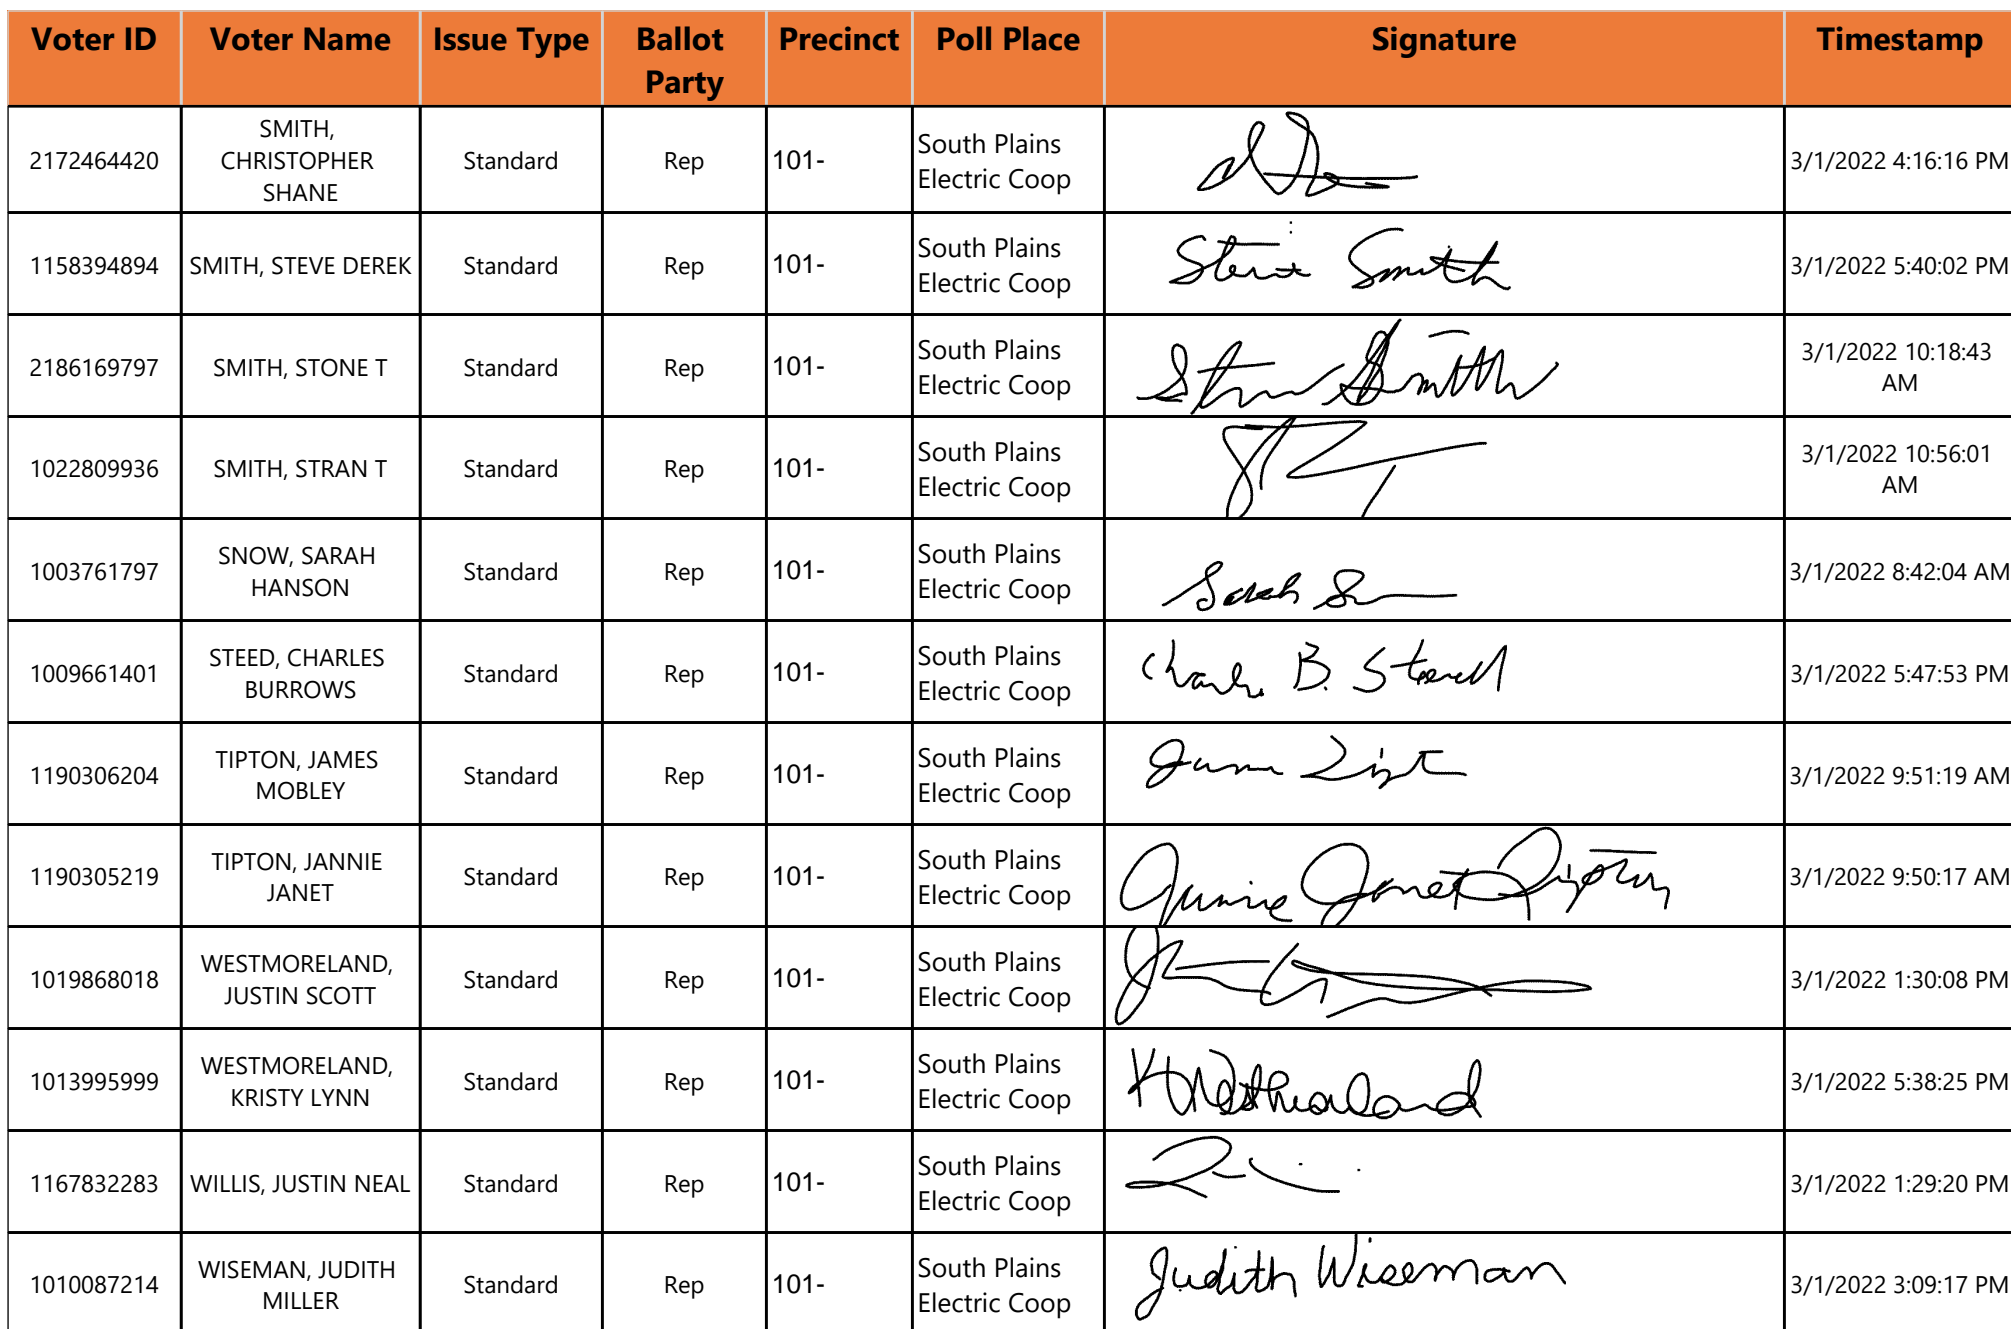 Voter ID Voter Name Issue Type Ballot Party Precinct Poll Place Signature Timestamp
2172464420 SMITH, CHRISTOPHER SHANE Standard Rep 101- South Plains Electric Coop 3/1/2022 4:16:16 PM
1158394894 SMITH, STEVE DEREK Standard Rep 101- South Plains Electric Coop Steve Smith 3/1/2022 5:40:02 PM
2186169797 SMITH, STONE T Standard Rep 101- South Plains Electric Coop Stone Smith 3/1/2022 10:18:43 AM
1022809936 SMITH, STRAN T Standard Rep 101- South Plains Electric Coop 3/1/2022 10:56:01 AM
1003761797 SNOW, SARAH HANSON Standard Rep 101- South Plains Electric Coop Sarah 3/1/2022 8:42:04 AM
1009661401 STEED, CHARLES BURROWS Standard Rep 101- South Plains Electric Coop Charles B. Steed 3/1/2022 5:47:53 PM
1190306204 TIPTON, JAMES MOBLEY Standard Rep 101- South Plains Electric Coop 3/1/2022 9:51:19 AM
1190305219 TIPTON, JANNIE JANET Standard Rep 101- South Plains Electric Coop Jannie Janet Tipton 3/1/2022 9:50:17 AM
1019868018 WESTMORELAND, JUSTIN SCOTT Standard Rep 101- South Plains Electric Coop 3/1/2022 1:30:08 PM
1013995999 WESTMORELAND, KRISTY LYNN Standard Rep 101- South Plains Electric Coop K Westmoreland 3/1/2022 5:38:25 PM
1167832283 WILLIS, JUSTIN NEAL Standard Rep 101- South Plains Electric Coop 3/1/2022 1:29:20 PM
1010087214 WISEMAN, JUDITH MILLER Standard Rep 101- South Plains Electric Coop Judith Wiseman 3/1/2022 3:09:17 PM